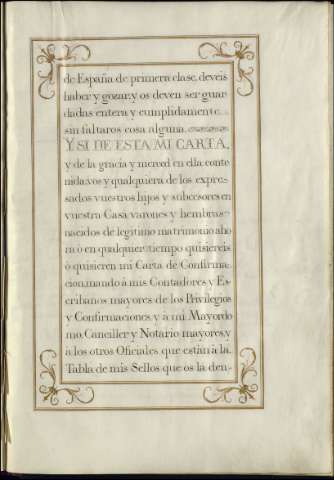 de España de primera clase, deveis
haber y gozar, y os deven ser guar
dadas entera y cumplidamente
sin faltaros cosa alguna.
Y SI DE ESTA MI CARTA,
y de la gracia y merced en ella conte
nida, vos y qualquiera de los expre-
sados vuestros hijos y subcesores en
vuestra Casa varones y hembras
nacidos de legitimo matrimonio aho
ra ó en qualquier tiempo quisiereis
ó quisieren mi Carta de Confirma-
cion, mando á mis Contadores y Es-
cribanos mayores de los Privilegios
y Confirmaciones, y á mi Mayordo
mo, Canciller y Notario mayores, y
á los otros Oficiales que están á la
Tabla de mis Sellos que os la den-